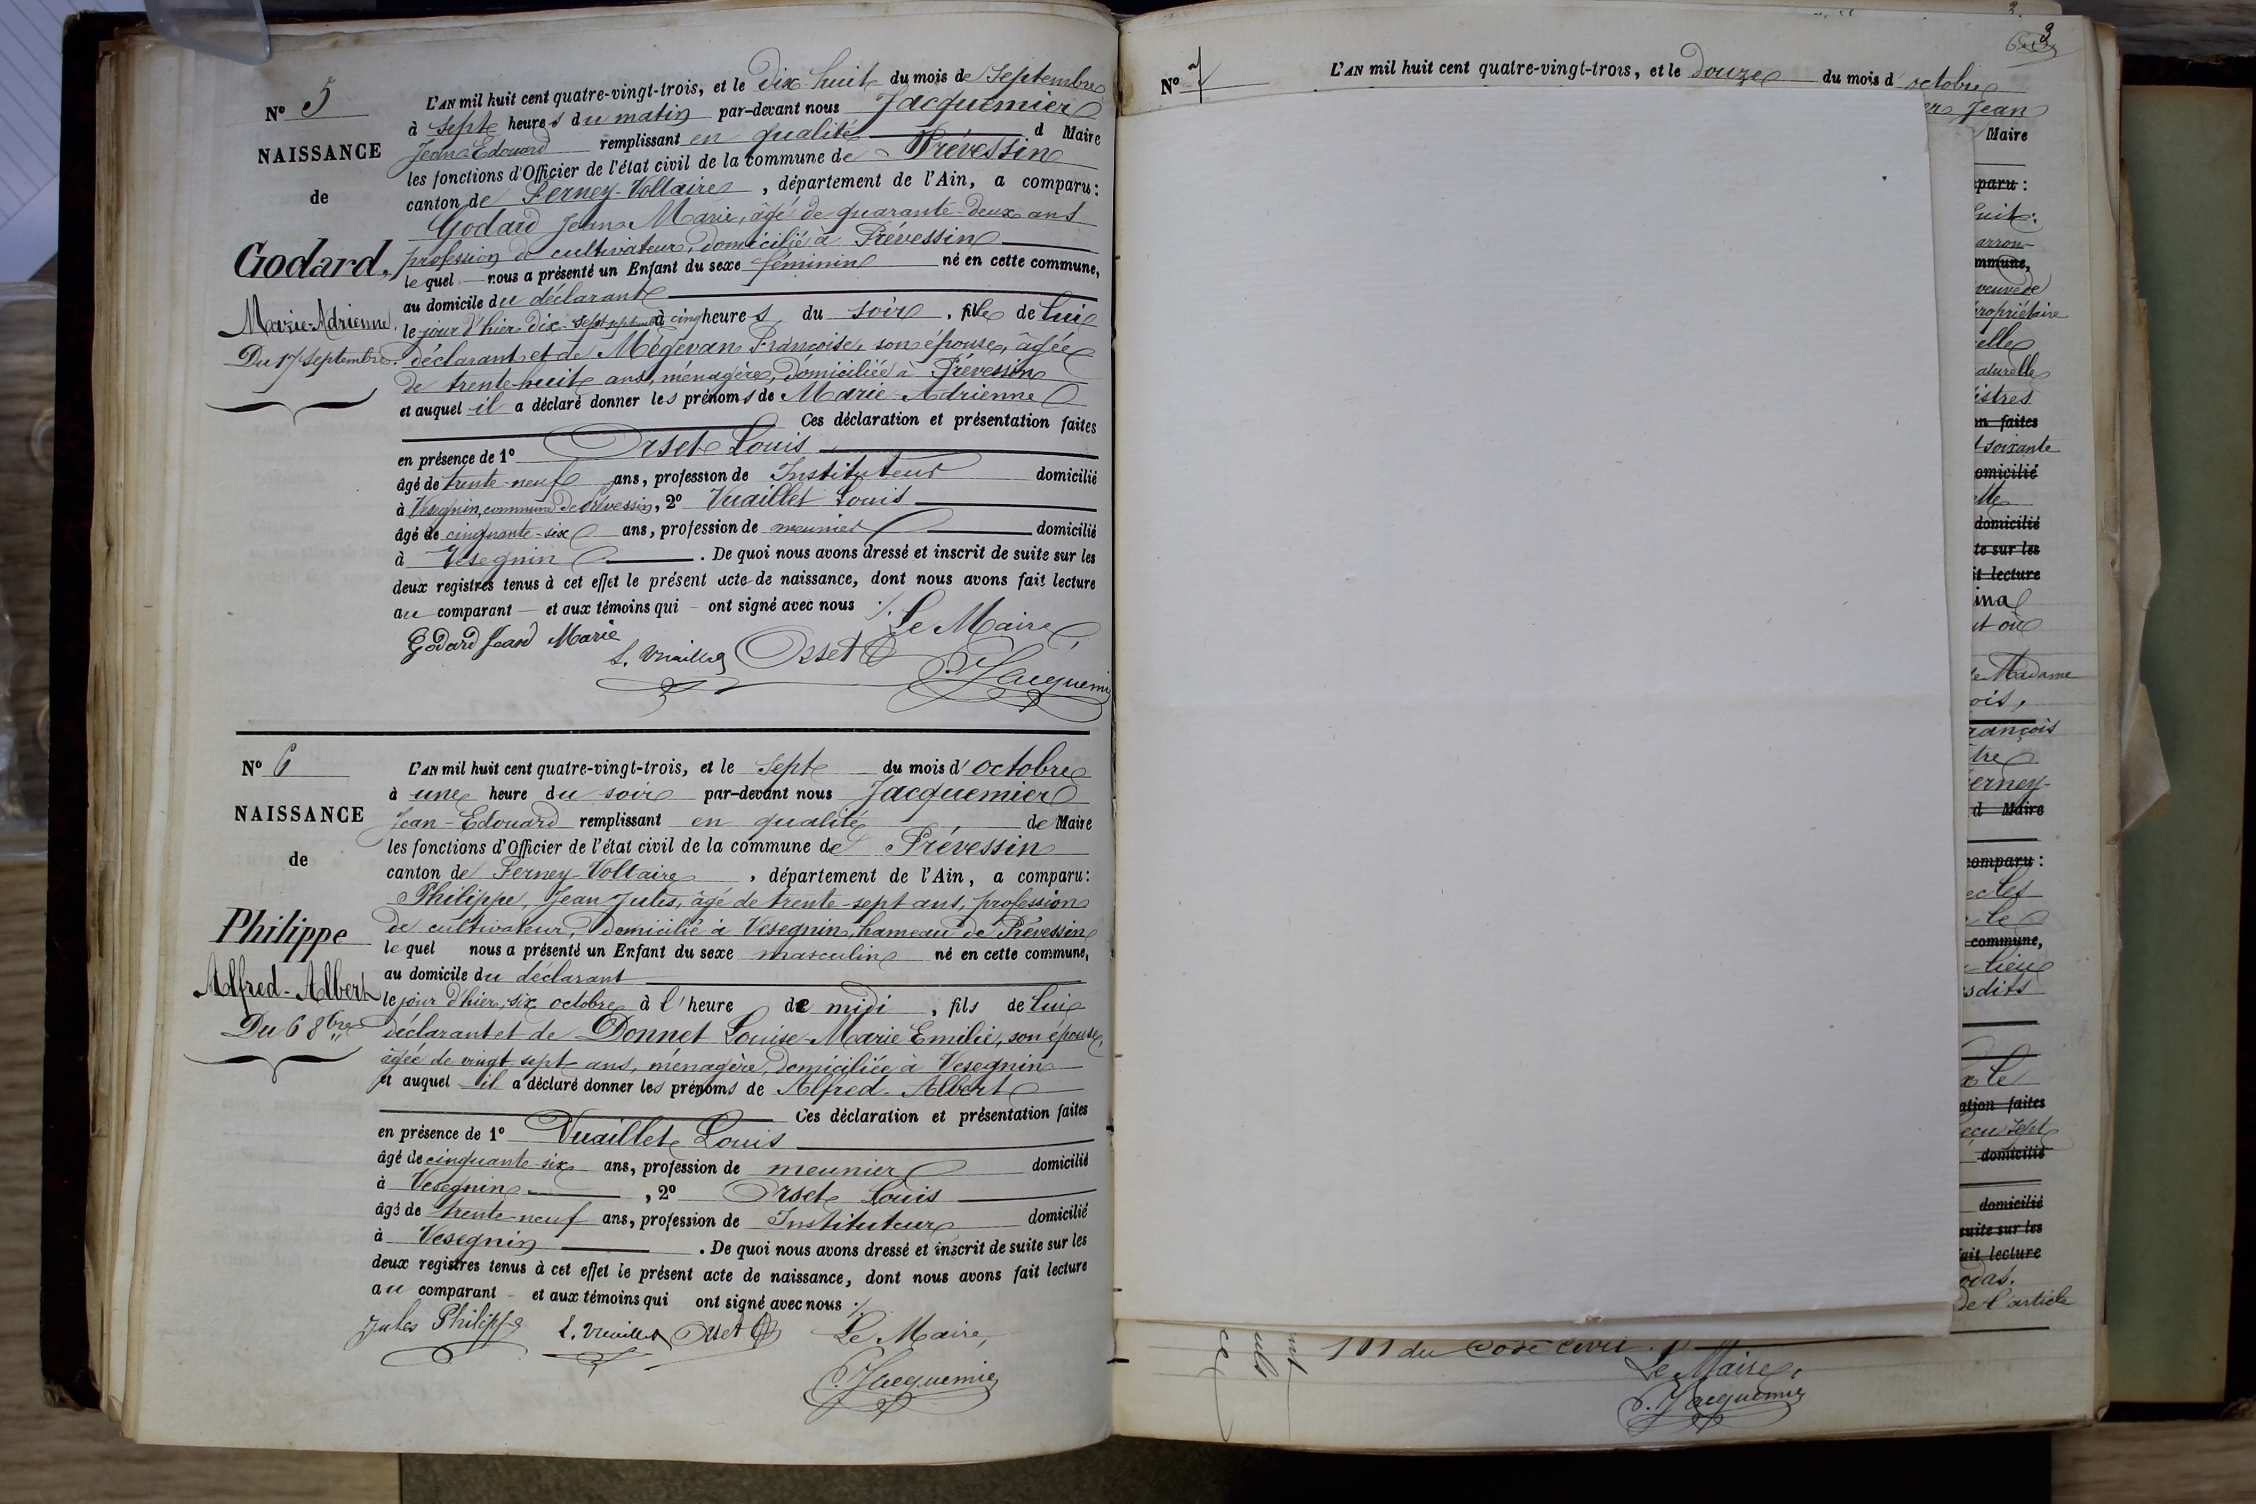 N° 5
NAISSANCE
de
Godard,
Marie-Adrienne.
Du 17 Septembre.
L'AN mil huit cent quatre-vingt-trois, et le Dix-huit du mois de Septembre
à sept heures du matin par-devant nous Jacquemier
Jean-Edouard remplissant en qualité d Maire
les fonctions d'Officier de l'état civil de la commune de Prévessin
canton de Ferney-Voltaire, département de l'Ain, a comparu:
Godard Jean Marie, âgé de quarante-deux ans
profession de cultivateur, domicilié à Prévessin
lequel nous a présenté un Enfant du sexe féminin né en cette commune,
au domicile du déclarant
le jour d'hier dix-sept septembre à cinq heures du soir, fille de lui
déclarant et de Mégevan Françoise, son épouse, âgée
de trente-huit ans, ménagère, domiciliée à Prévessin
et auquel il a déclaré donner les prénoms de Marie-Adrienne
Ces déclaration et présentation faites
en présence de 1° Orset Louis
âgé de trente-neuf ans, profession de Instituteur domicilié
à Vesegnin, commune de Prévessin, 2° Vuaillet Louis
âgé de cinquante-six ans, profession de meunier domicilié
à Vesegnin. De quoi nous avons dressé et inscrit de suite sur les
deux registres tenus à cet effet le présent acte de naissance, dont nous avons fait lecture
au comparant et aux témoins qui ont signé avec nous ./.
Le Maire,
Godard Jean Marie
L. Vuaillet Orset
Jacquemier
N° 6
NAISSANCE
de
Philippe
Alfred-Albert
Du 6 8bre
L'AN mil huit cent quatre-vingt-trois, et le sept du mois d'octobre
à une heure du soir par-devant nous Jacquemier
Jean-Edouard remplissant en qualité de Maire
les fonctions d'Officier de l'état civil de la commune de Prévessin
canton de Ferney-Voltaire, département de l'Ain, a comparu:
Philippe, Jean Jules, âgé de trente-sept ans, profession
de cultivateur, domicilié à Vesegnin, hameau de Prévessin
lequel nous a présenté un Enfant du sexe masculin né en cette commune,
au domicile du déclarant
le jour d'hier, six octobre à l'heure de midi, fils de lui
déclarant et de Donnet Louise-Marie Emélie, son épouse,
âgée de vingt sept ans, ménagère, domiciliée à Vesegnin
et auquel il a déclaré donner les prénoms de Alfred-Albert
Ces déclaration et présentation faites
en présence de 1° Vuaillet Louis
âgé de cinquante-six ans, profession de meunier domicilié
à Vesegnin, 2° Orset Louis
âgé de trente-neuf ans, profession de Instituteur domicilié
à Vesegnin. De quoi nous avons dressé et inscrit de suite sur les
deux registres tenus à cet effet le présent acte de naissance, dont nous avons fait lecture
au comparant et aux témoins qui ont signé avec nous ./.
Jules Philippe L. Vuaillet Orset Le Maire,
Jacquemier
3
N° 7
L'AN mil huit cent quatre-vingt-trois, et le douze du mois d'octobre
Jean
Maire
paru:
huit
arron-
mmune,
veuve de
propriétaire
elle
aturelle
istres
on faites
t soixante
omicilié
ette
domicilié
te sur les
it lecture
inal
et où
e Madame
ois,
rançois
tre
erney-
d Maire
comparu:
ec les
le
commune,
lieu
sdits
x le
ation faites
eçu sept
domicilié
domicilié
suite sur les
ait lecture
odas.
de l'article
101 du Code civil.
Le Maire,
Jacquemier